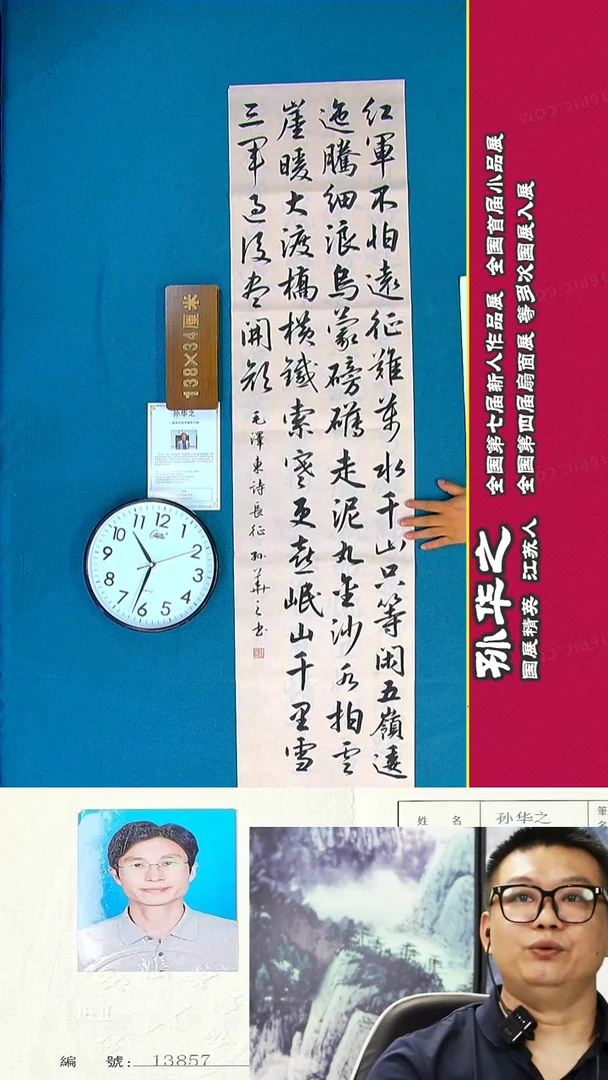 紅軍不怕遠征難萬水千山只等閑五嶺逶
迤騰細浪烏蒙磅礴走泥丸金沙水拍雲
崖暖大渡橋橫鐵索寒更喜岷山千里雪
三軍過後盡開顏
毛澤東詩長征 孫華之書
138×34厘米
孙华之
12
1
2
3
4
5
6
7
8
9
10
11
全国第七届新人作品展 全国首届小品展
全国第四届扇面展 等多次国展入展
孙华之
国展精英 江苏人
姓 名
孙华之
筆
名
編 號: 13857